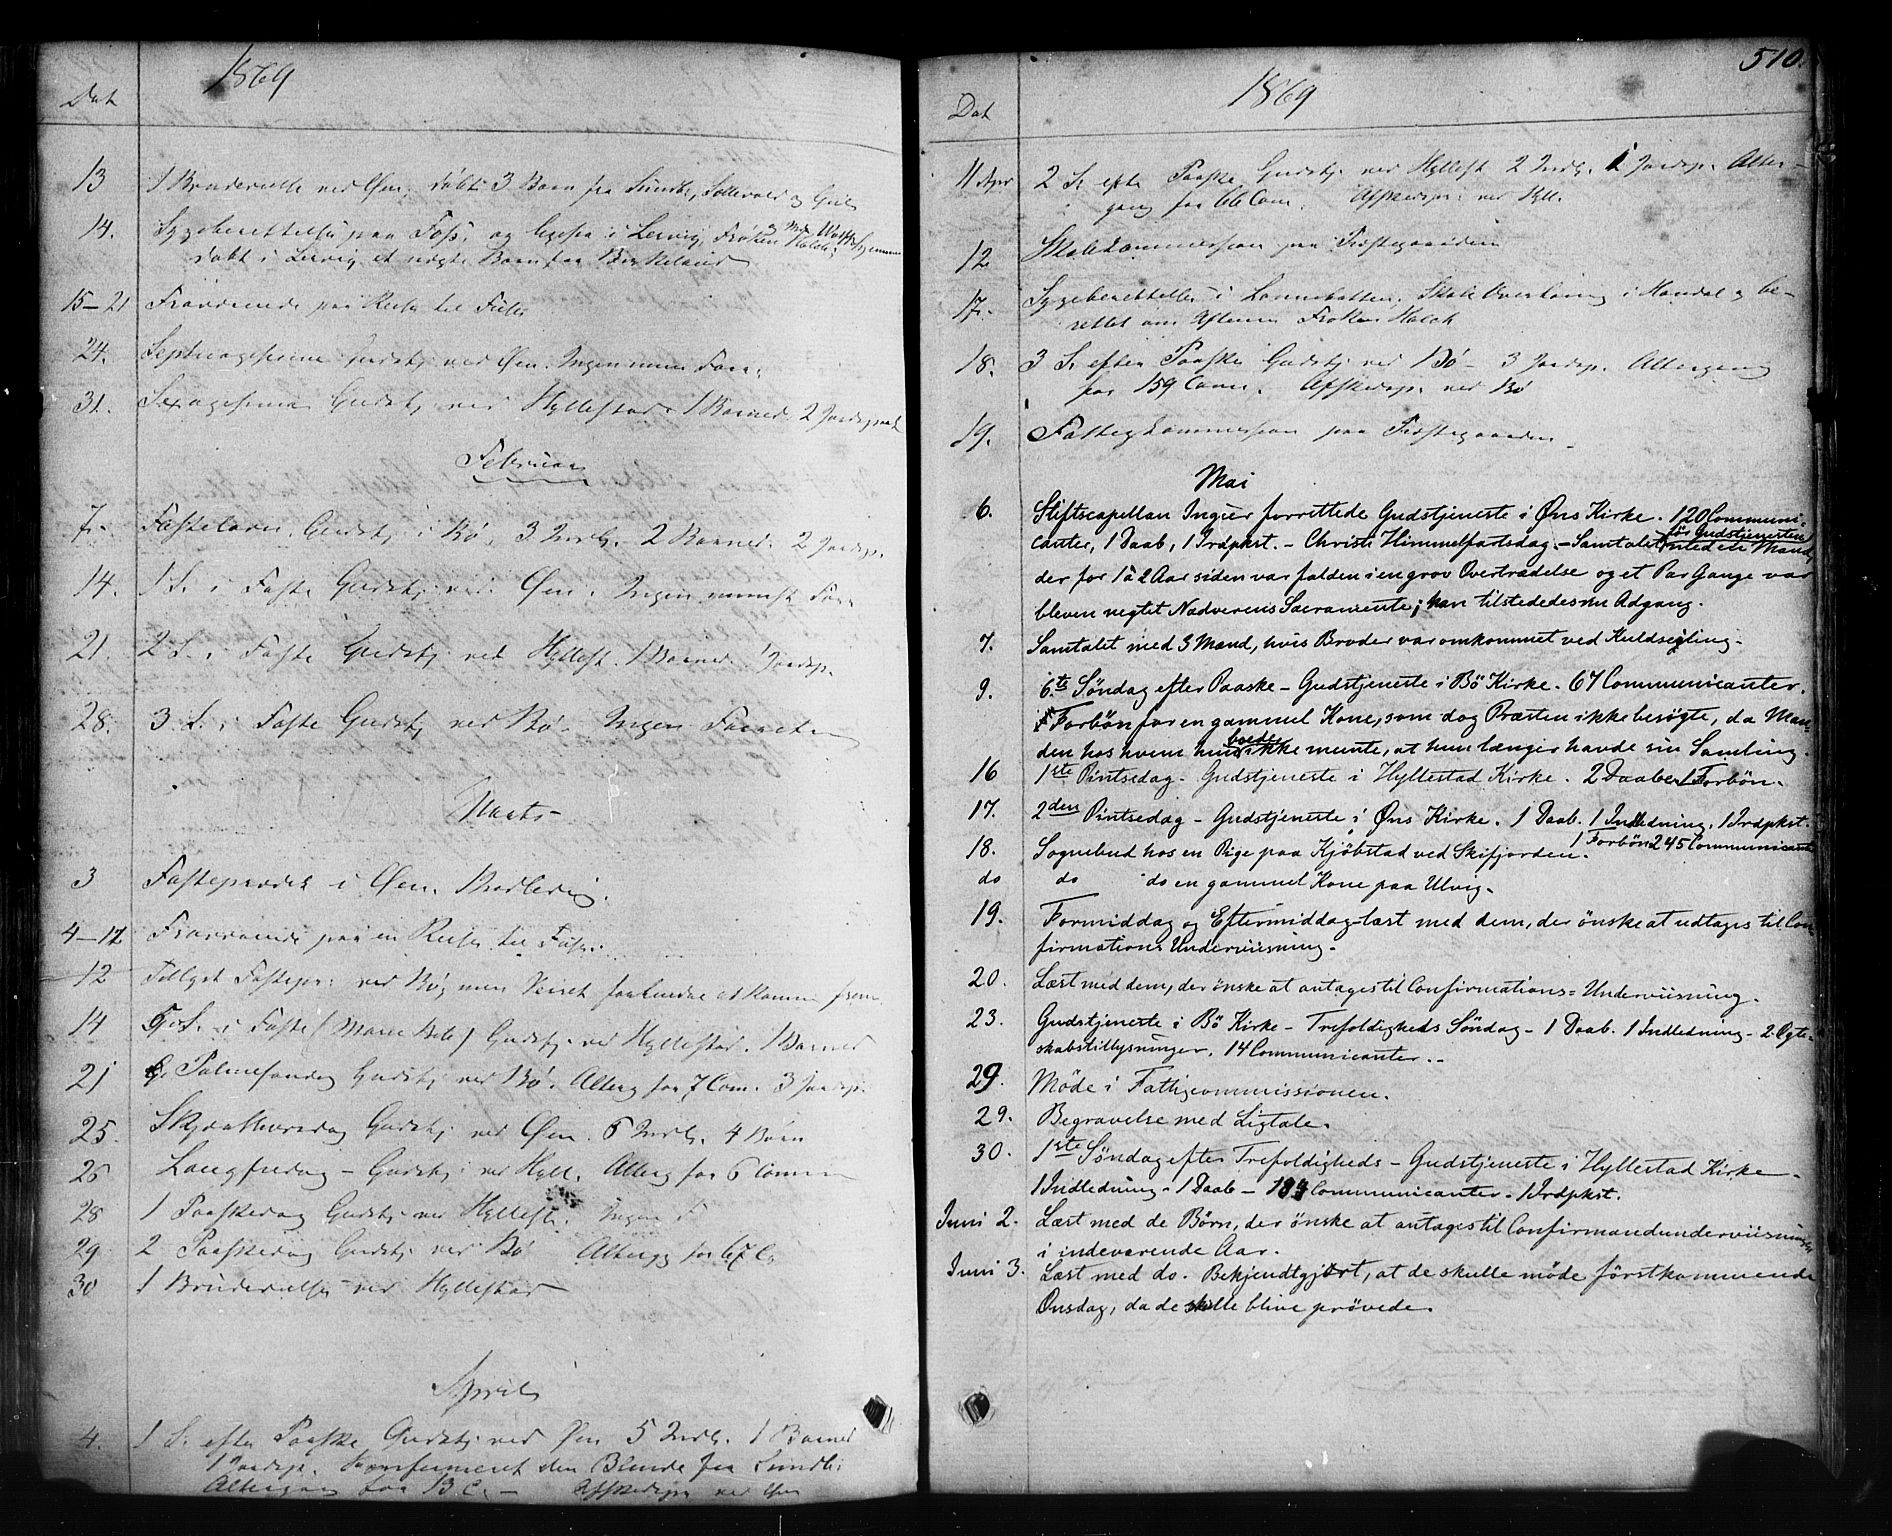 1869
Dat
13 1 Brudevielse ved Øen; døbt 3 Børn fra Sundb, og
14. Sygeberettelse paa Foss, og i Lervig, Frøken Holch;
Døbt i Lervig et uægte Barn fra Birkeland
15-21 Fraværende paa Reise til
24. Septuagesima Gudstj ved Øen. Ingen Forr.
31. Sexagesima Gudstj ved Hyllestad. 1 Barned. 2 Jordspaak
Februar
7. Fastelavn. Gudstj i Bø. 3 Indl. 2 Barned. 2 Jordsp.
14. 1 S. i Faste Gudstj ved Øen. Ingen Forr
21. 2 S. i Faste Gudstj ved Hyllest. 1 Barned. 1 Jordsp.
28. 3 S. i Faste Gudstj ved Bø. Ingen Forret
Marts
3 Fasteprædek i Øen.
4-12 Fraværende paa en Reise til
12 Tillyst Fastepr. ved Bø, men Veiret forhindre at komme frem
14 S. i Faste (Mariæ Beb) Gudstj. ved Hyllestad. 1 Barned
21 Palmesøndag Gudstj ved Bø. Alterg for 7 Com. 3 Jordsp.
25. Skjærthorsdag Gudstj ved Øen. 6 Indl. 4 Børn
26 Langfredag - Gudstj i ved Hyll. Alterg for 6 Comm
28 1 Paaskedag Gudstj ved Hyllest. Ingen F
29 2 Paaskedag Gudstj ved Bø Altergg for 67 C.
30 1 Brudevielse ved Hyllestad
April
4. 1 S. efter Paaske Gudstj ved Øen 5 Indl. 1 Barned
1 Jordsp. Konfirmeret den Blinde fra Sundb:
Altergang for 13 C. - Afskedspr ved Øen
510.
1869
Dat
11 Apr 2 S. efter Paaske Gudstj. ved Hyllest 2 Indl. 1 Jordsp. Alter-
gang for 66 Com. Afskedspr. ved Hyll.
12 Skolekommission paa Præstegaarden
17. Sygeberettelse i Lonnebotten. Skoleoverhøring i Mandal og be-
rettet om Aftenen Frøken Holch
18. 3 S. efter Paaske Gudstj ved Bø - 3 Jordsp. Altergang
for 159 Com. Afskedspr. ved Bø
19. Fattigkommission paa Præstegaarden
Mai
6. Stiftscapellan Ingier forrettede Gudstjeneste i Øns Kirke. 120 Communi-
canter, 1 Daab, 1 Jrdpkst. - Christi Himmelfartsdag. - Samtalet før Gudstjenesten med en Mand,
der for 1 à 2 Aar siden var falden i en grov Overtrædelse og et Par Gange var
bleven negtet Nadverens Sacramente; han tilstededes nu Adgang.
7. Samtalet med 3 Mænd, hvis Broder var omkommet ved Kuldseiling.
9. 6.te Søndag efter Paaske - Gudstjeneste i Bö Kirke. 67 Communicanter.
Forbøn for en gammel Kone, som dog Præsten ikke besøgte, da Man-
den hos hvem hun boede ikke mente, at hun længer havde sin Samling.
16 1ste Pintsedag - Gudstjeneste i Hyllestad Kirke. 2 Daabe 1 Forbön.
17. 2den Pintsedag - Gudstjeneste i Øns Kirke. 1 Daab. 1 Indledning. 1 Jrdpkst.
1 Forbön 245 Communicant
18. Sognebud hos en Pige paa Kjöbstad ved Skifjorden.
do do do en gammel Kone paa Ulvig.
19. Formiddag og Eftermiddag læst med dem, der ønske at udtages til Con-
firmations Underviisning.
20. Læst med dem, der ønske at antages til Confirmations=Underviisning.
23. Gudstjeneste i Bö Kirke - Trefoldigheds Søndag - 1 Daab. 1 Indledning - 2 Ægte-
skabstillysninger. 14 Communicanter. -
29. Möde i Fattigcommissionen.
29. Begravelse med Ligtale.
30. 1ste Søndag efter Trefoldigheds - Gudstjeneste i Hyllestad Kirke -
1 Indledning - 1 Daab - Communicanter - 1 Jrdpkst.
Juni 2. Læst med de Børn, der ønske at antages til Confirmandunderviisning
i indeværende Aar.
Juni 3. Læst med do. Bekjendtgjørt, at de skulle møde førstkommende
Onsdag, da de skulle blive prøvede.